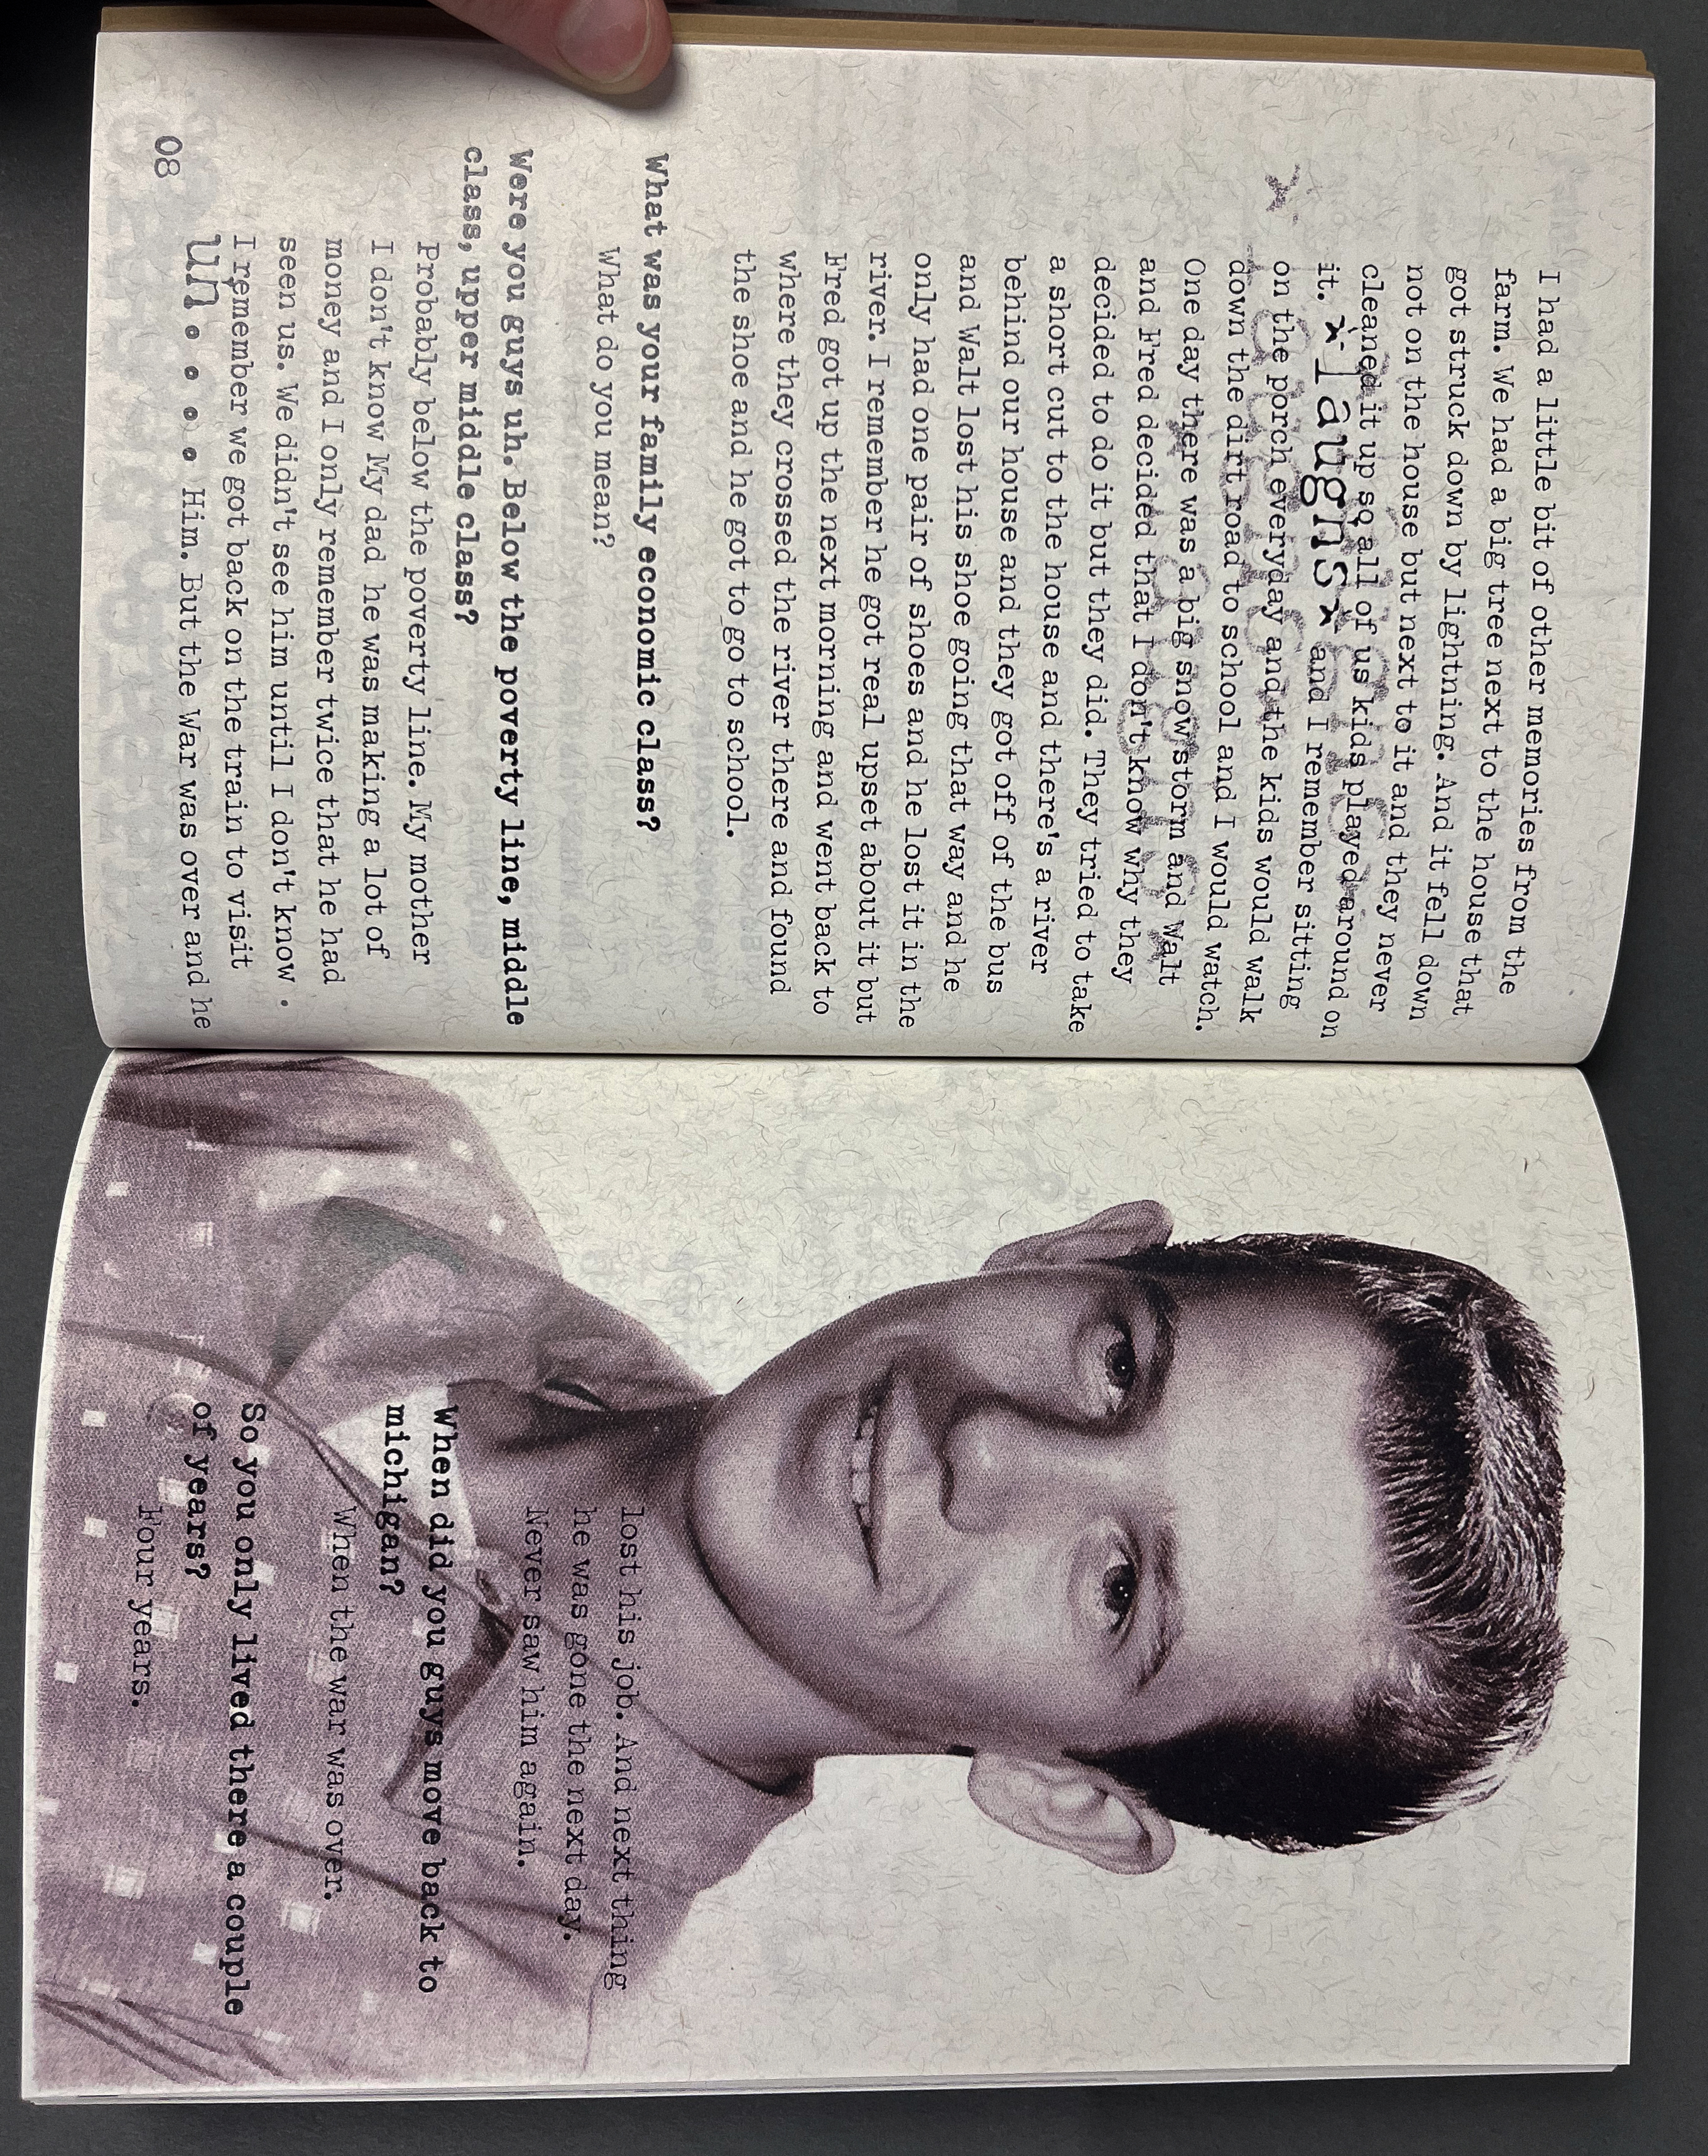 I had a little bit of other memories from the
farm. We had a big tree next to the house that
got struck down by lightning. And it fell down
not on the house but next to it and they never
cleaned it up so all of us kids played around on
it. *laughs* and I remember sitting
on the porch everyday and the kids would walk
down the dirt road to school and I would watch.
One day there was a big snow storm and Walt
and Fred decided that I don't know why they
decided to do it but they did. They tried to take
a short cut to the house and there's a river
behind our house and they got off of the bus
and Walt lost his shoe going that way and he
only had one pair of shoes and he lost it in the
river. I remember he got real upset about it but
Fred got up the next morning and went back to
where they crossed the river there and found
the shoe and he got to go to school.
What was your family economic class?
What do you mean?
Were you guys uh. Below the poverty line, middle
class, upper middle class?
Probably below the poverty line. My mother
I don't know My dad he was making a lot of
money and I only remember twice that he had
seen us. We didn't see him until I don't know .
I remember we got back on the train to visit
un.... Him. But the War was over and he
08
lost his job. And next thing
he was gone the next day.
Never saw him again.
When did you guys move back to
michigan?
When the war was over.
So you only lived there a couple
of years?
Four years.